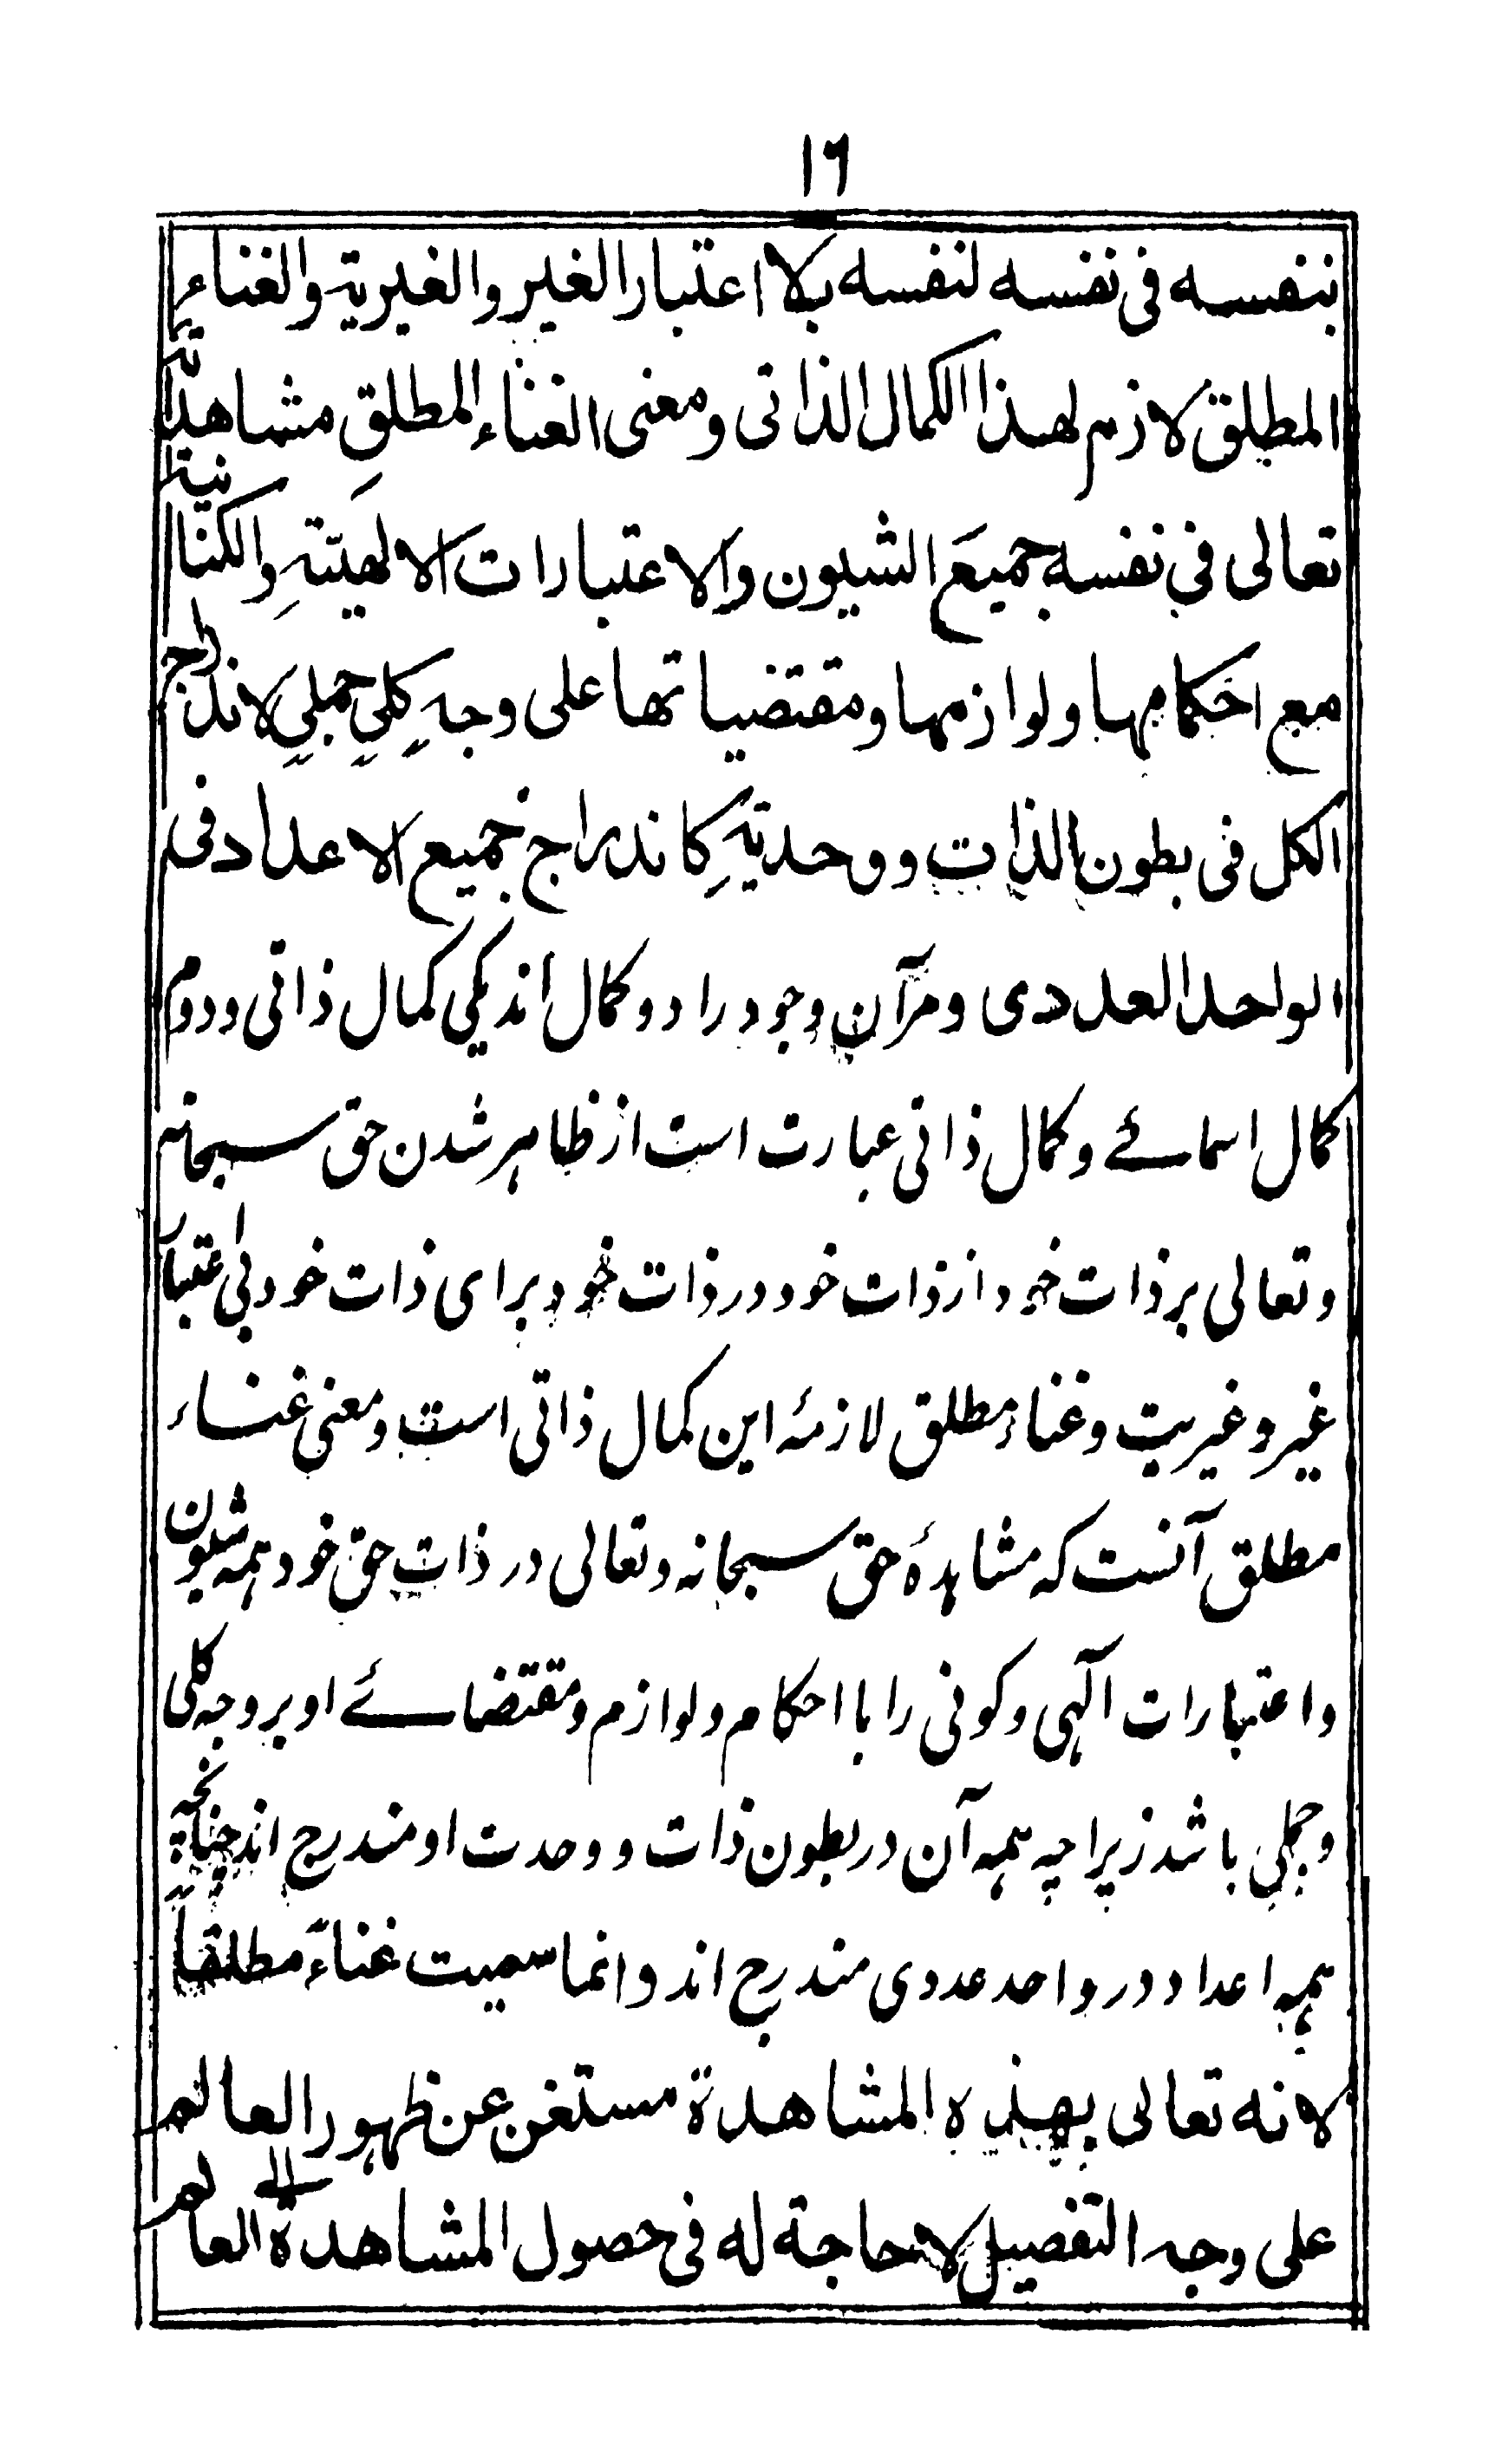 ١٦
بنفسه فى نفسه لنفسه بلا اعتبار الغير والغيرية والغناء
المطلق لازم لهذا الكمال الذاتى ومعنى الغناء المطلقِ مشاهدته
تعالى فى نفسه جميعَ الشيون والاعتبارات الالهيّتهِ والكنانية
مع احكامها ولوازمها ومقتضياتها على وجهٍ كليٍ جمليٍ لاندراج
الكل فى بطون الذات ووحدتهِ كاندراج جميع الاعداد فى
الواحد العددى ومرآن وجود را دو كمال اند يكى كمال ذاتى ودوم
كمال اسمائے وكمال ذاتى عبارت است از ظاهر شدن حق سبحانه
وتعالى بر ذات خود از ذات خود در ذات خود براى ذات خود بى اعتبار
غير وغيريت وغناء مطلق لازمۂ اين كمال ذاتى است ومعنى غناء
مطلق آنست كه مشاهدۂ حق سبحانه وتعالى در ذات حق خود همه شيون
واعتبارات آلهى وكونى را با احكام ولوازم ومقتضائے او بر وجه كلى
وجملى باشد زيراچه همه آن در بطون ذات ووحدت او مندرج اند چنانچه
همه اعداد در واحد عددى مندرج اند وانما سميت غناءً مطلقاً
لانه تعالى بهذه المشاهدة مستغن عن ظهور العالم
على وجه التفصيل لاحاجة له فى حصول المشاهدة الى العالم